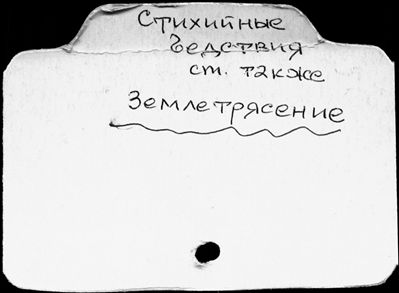 Стихийные
бедствия
см. также
Землетрясение